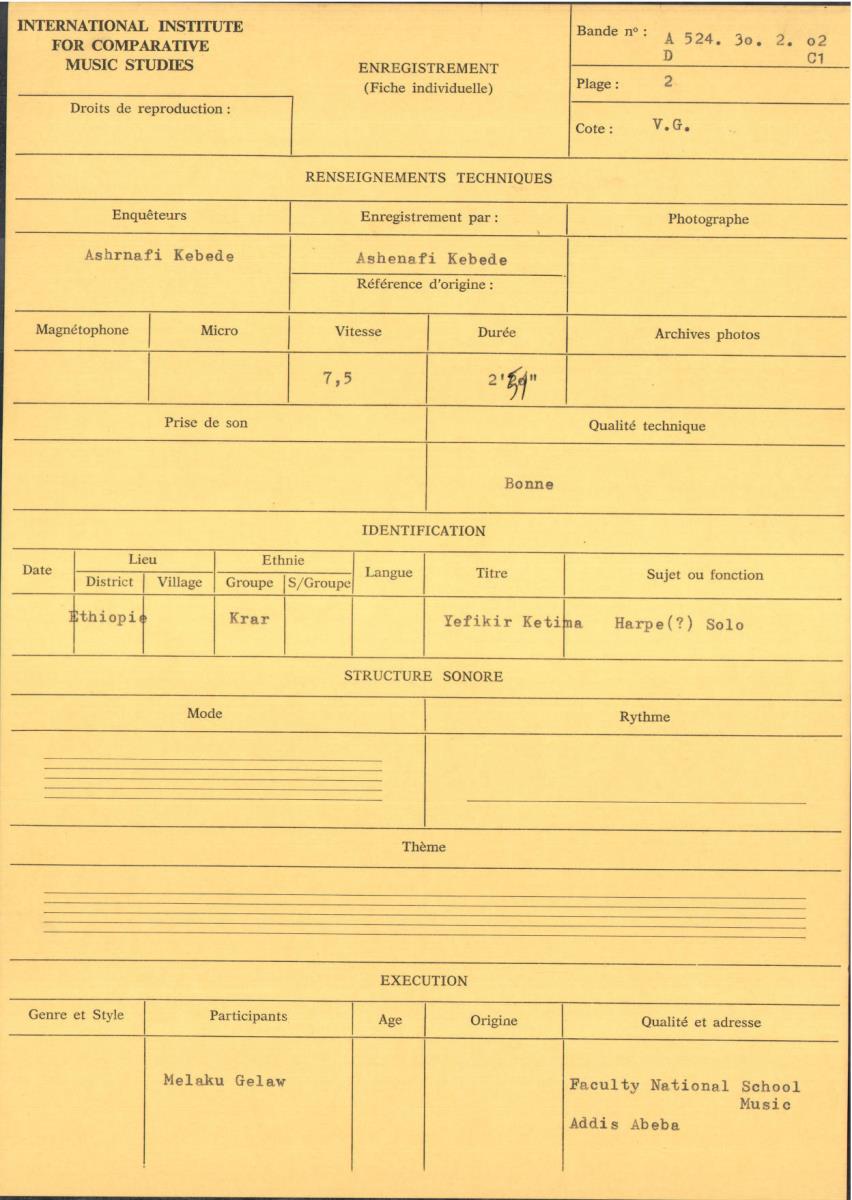 INTERNATIONAL INSTITUTE
FOR COMPARATIVE
MUSIC STUDIES
Droits de reproduction :
ENREGISTREMENT
(Fiche individuelle)
Bande nº : A 524. 3o. 2. o2
D C1
Plage : 2
Cote : V.G.
RENSEIGNEMENTS TECHNIQUES
Enquêteurs Enregistrement par : Photographe
Ashrnafi Kebede Ashenafi Kebede
Référence d'origine :
Magnétophone Micro Vitesse Durée Archives photos
7,5 2' "
Prise de son Qualité technique
Bonne
IDENTIFICATION
Date Lieu Ethnie Langue Titre Sujet ou fonction
District Village Groupe S/Groupe
Ethiopie Krar Yefikir Ketima Harpe(?) Solo
STRUCTURE SONORE
Mode Rythme
Thème
EXECUTION
Genre et Style Participants Age Origine Qualité et adresse
Melaku Gelaw Faculty National School
Music
Addis Abeba